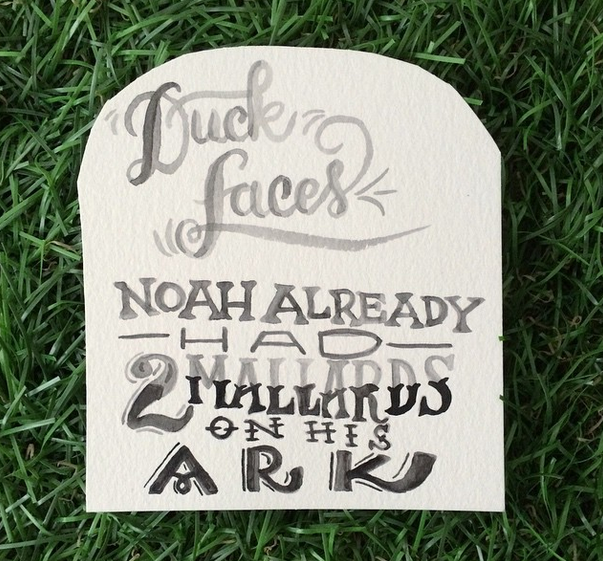 Duck
faces
NOAH ALREADY
HAD
2 MALLARDS
ON HIS
ARK